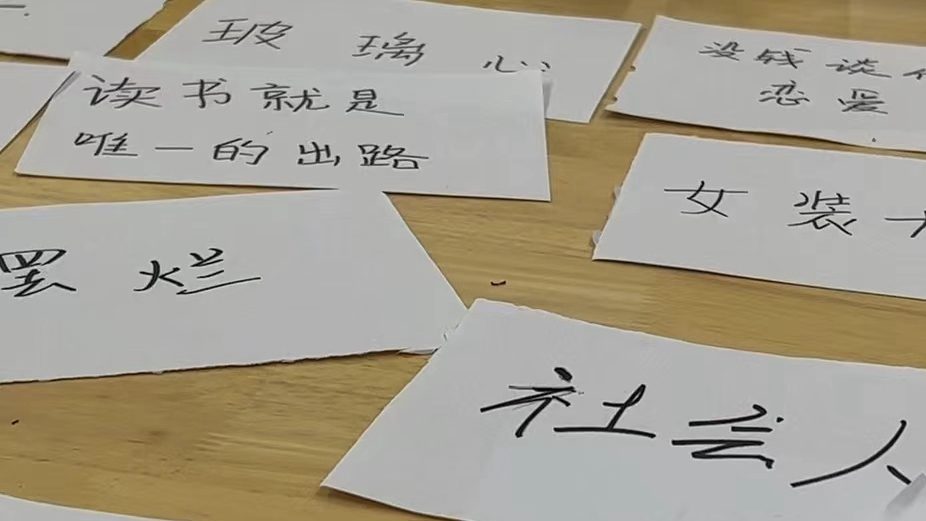 玻璃心
没钱谈
恋爱
读书就是
唯一的出路
女装
罢烂
社会人